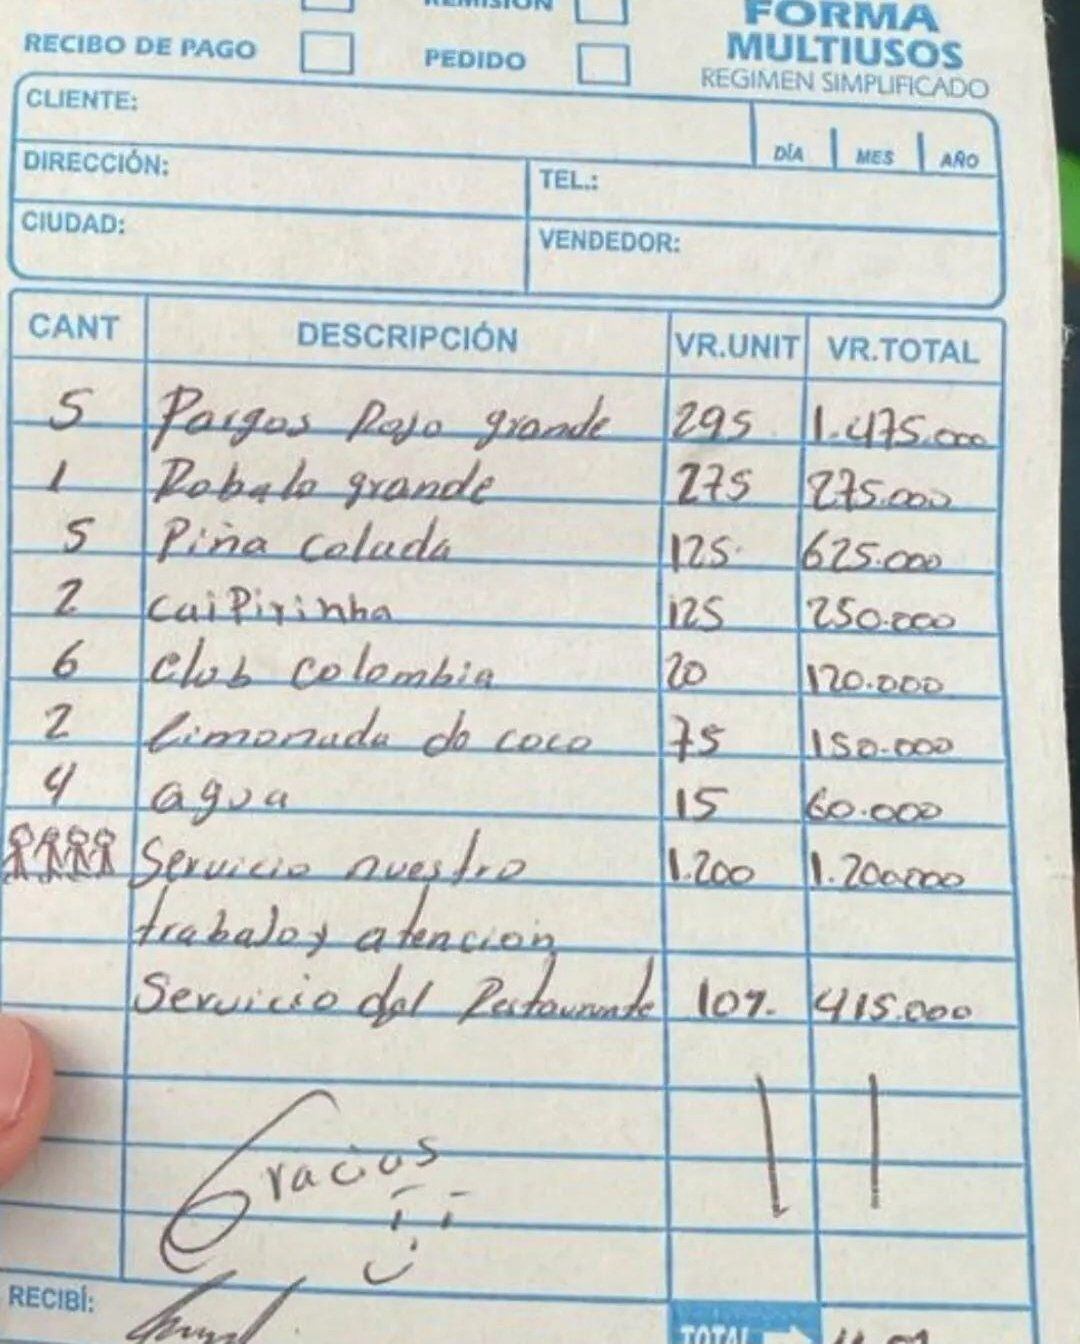 REMISIÓN
FORMA
MULTIUSOS
REGIMEN SIMPLIFICADO
RECIBO DE PAGO PEDIDO
CLIENTE:
DÍA MES AÑO
DIRECCIÓN: TEL.:
CIUDAD: VENDEDOR:
CANT DESCRIPCIÓN VR.UNIT VR.TOTAL
5 Paigos Rojo grande 295 1.475.000
1 Robalo grande 275 275.000
5 Piña Colada 125 625.000
2 CaiPirinha 125 250.000
6 Club Colombia 20 120.000
2 limonada do coco 75 150.000
4 agua 15 60.000
Servicio nuestro 1.200 1.200.000
trabalo y atencion
Servicio del Restaurante 10%. 415.000
Gracias
RECIBÍ:
TOTAL